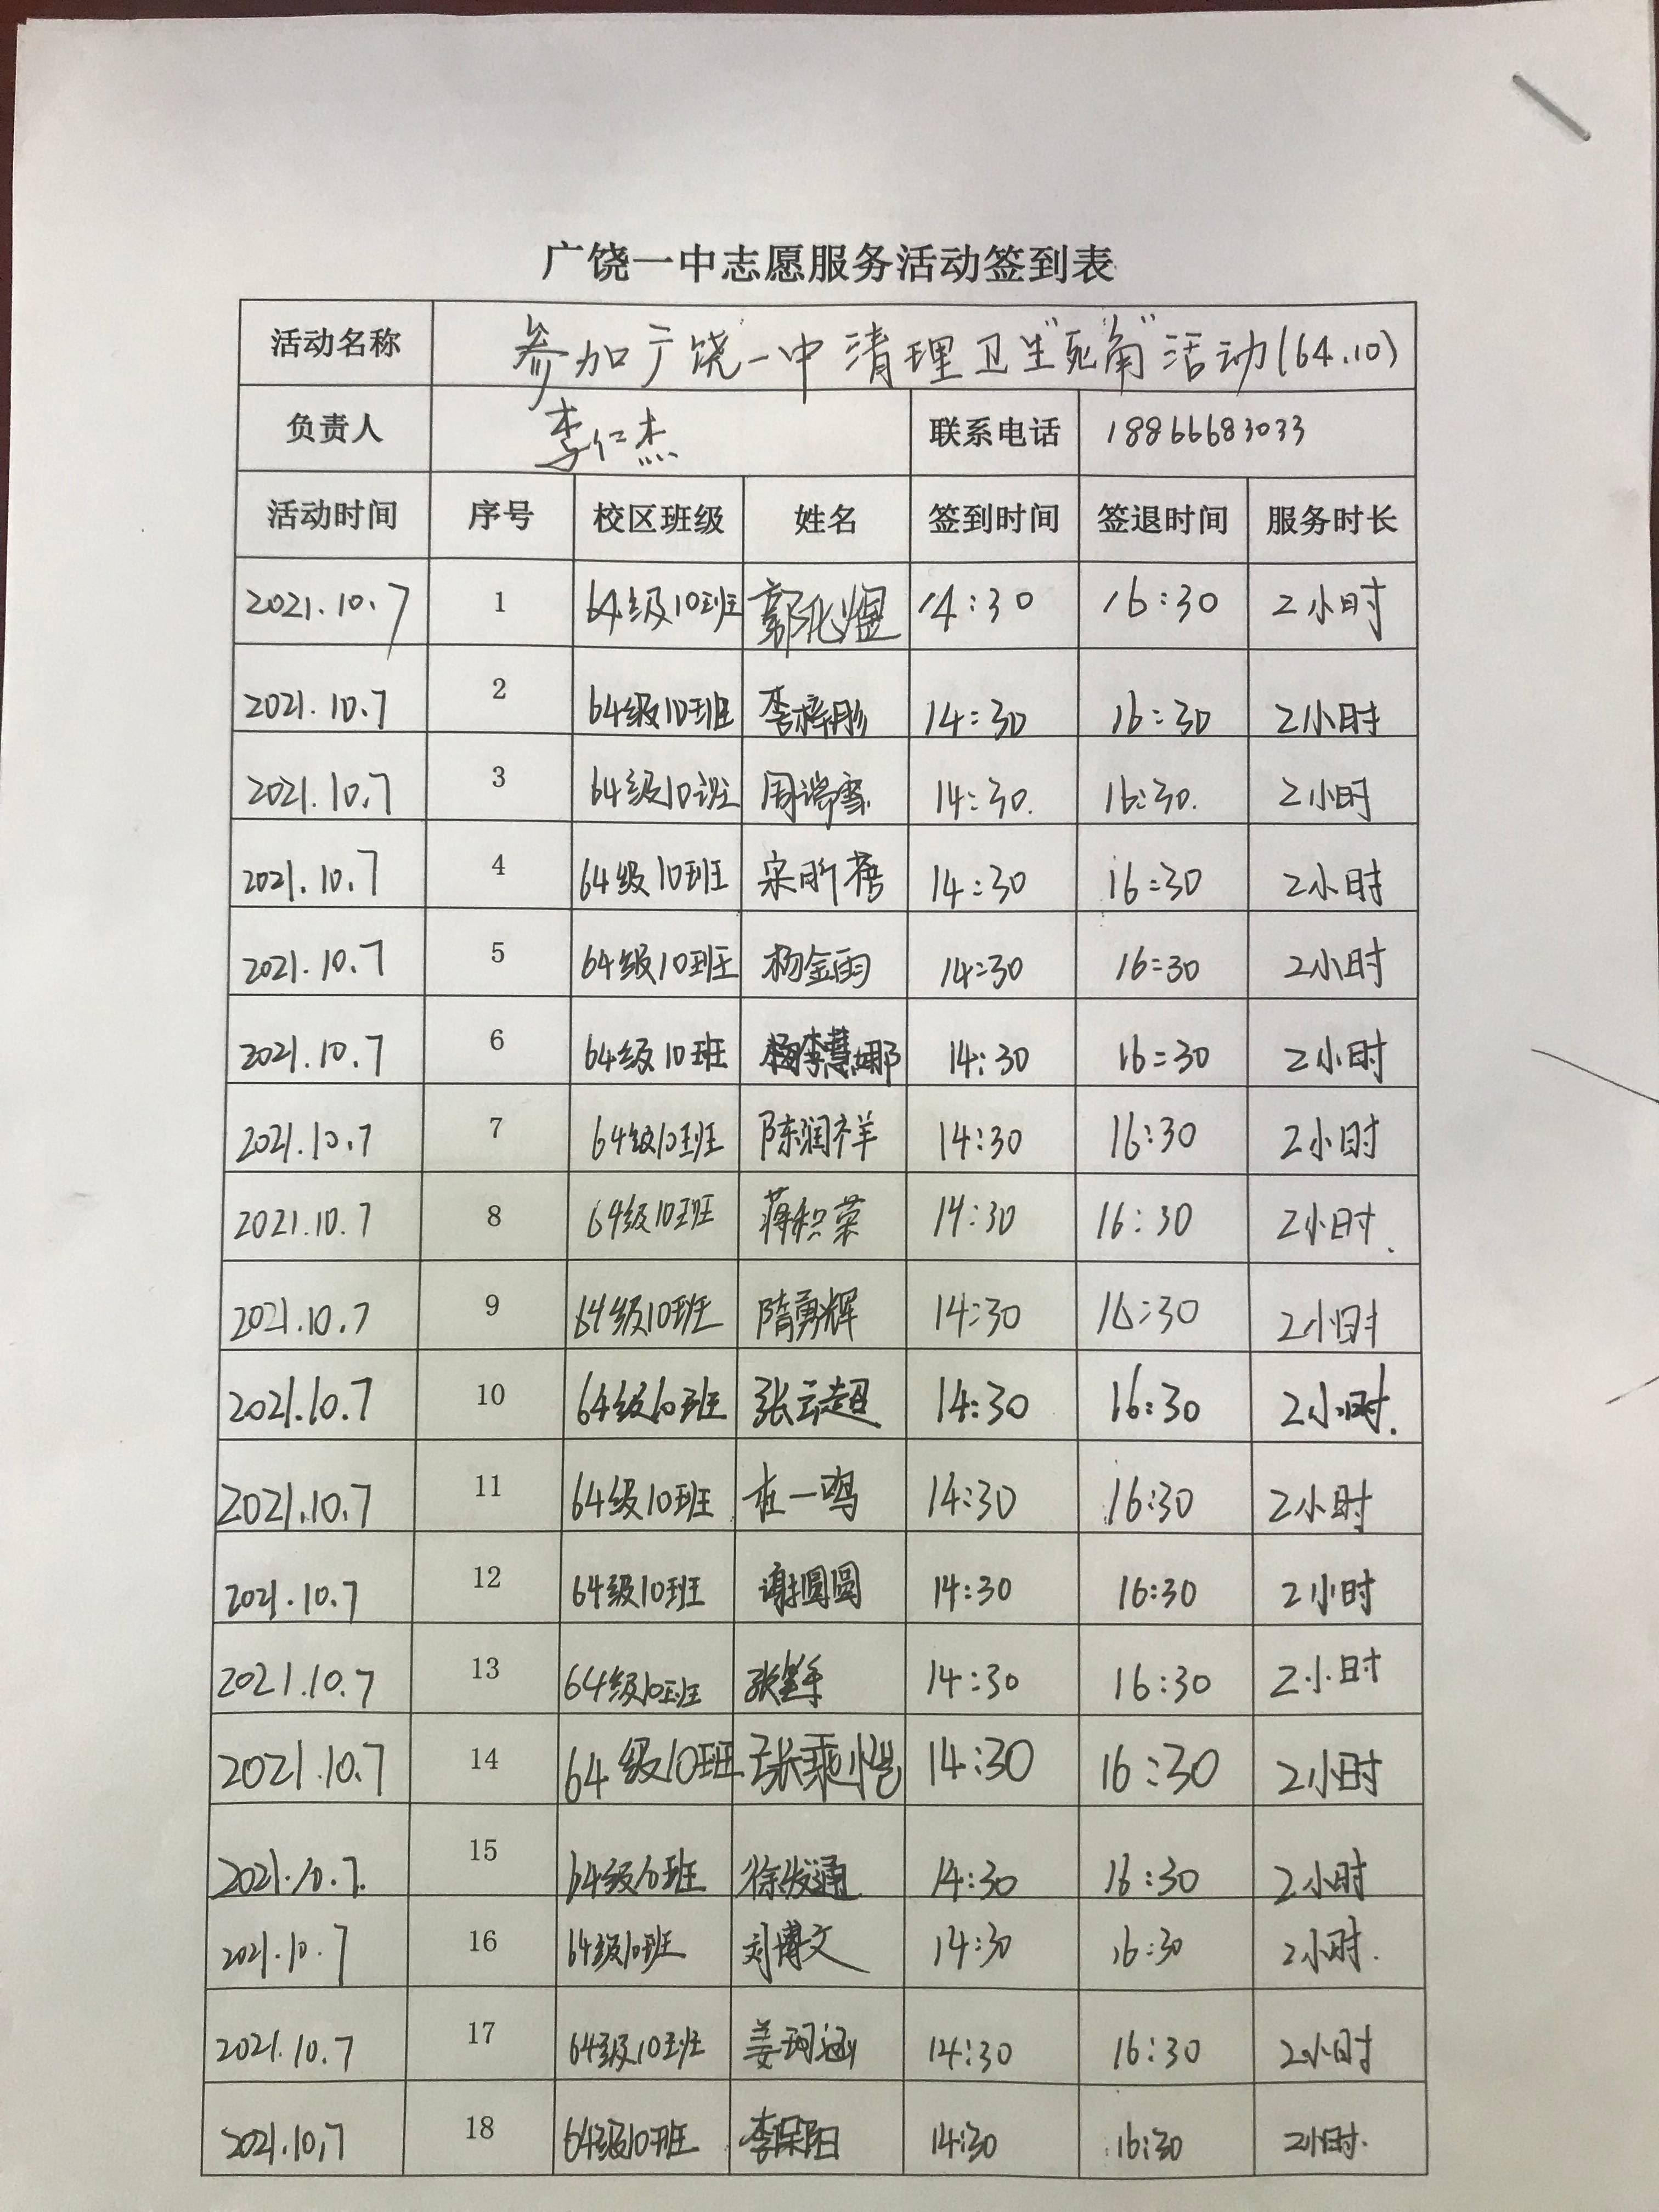 广饶一中志愿服务活动签到表
活动名称 参加广饶一中清理卫生"死角"活动(64.10)
负责人 李仁杰 联系电话 18866683033
活动时间 序号 校区班级 姓名 签到时间 签退时间 服务时长
2021.10.7 1 64级10班 郭化煜 14:30 16:30 2小时
2021.10.7 2 64级10班 李梓彤 14:30 16:30 2小时
2021.10.7 3 64级10班 周瑞雪 14:30. 16:30. 2小时
2021.10.7 4 64级10班 宋昕蓓 14:30 16:30 2小时
2021.10.7 5 64级10班 杨金雨 14:30 16:30 2小时
2021.10.7 6 64级10班 14:30 16:30 2小时
2021.10.7 7 64级10班 陈润祥 14:30 16:30 2小时
2021.10.7 8 64级10班 蒋积荣 14:30 16:30 2小时.
2021.10.7 9 64级10班 隋勇辉 14:30 16:30 2小时
2021.10.7 10 64级10班 张云超 14:30 16:30 2小时.
2021.10.7 11 64级10班 杜一鸣 14:30 16:30 2小时
2021.10.7 12 64级10班 谢圆圆 14:30 16:30 2小时
2021.10.7 13 64级10班 14:30 16:30 2小时
2021.10.7 14 64级10班 14:30 16:30 2小时
2021.10.7. 15 64级10班 14:30 16:30 2小时
2021.10.7 16 64级10班 刘博文 14:30 16:30 2小时.
2021.10.7 17 64级10班 姜珂涵 14:30 16:30 2小时
2021.10.7 18 64级10班 李保阳 14:30 16:30 2小时.